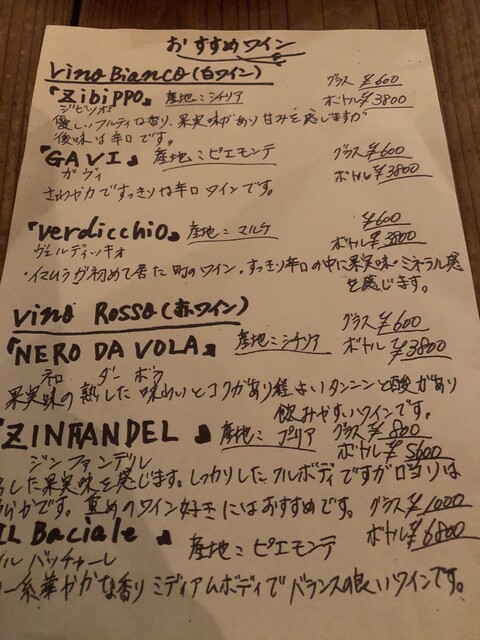 おすすめワイン
Vino Bianco(白ワイン)
「Zibippo」 産地:シチリア グラス ¥600
ジビッポ ボトル ¥3800
優しいフルティな香り、果実味があり甘みを感じますが
後味は辛口です。
「GAVI」 産地:ピエモンテ グラス ¥600
ガヴィ ボトル ¥3800
さわやかですっきりな辛口ワインです。
「verdicchio」 産地:マルケ ¥600
ヴェルディッキオ ボトル ¥3800
・イマムラが初めて着た町のワイン。すっきり辛口の中に果実味・ミネラル感
を感じます。
Vino Rosso(赤ワイン)
「NERO DA VOLA」 産地:シチリア グラス ¥600
ネロ ダー ボラ ボトル ¥3800
果実味の熟した味わいとコクがあり程よいタンニンと酸があり
飲みやすいワインです。
ZINFANDEL」 産地:プーリア グラス ¥800
ジンファンデル ボトル ¥5600
した果実味を感じます。しっかりしたフルボディですが口当りは
らかです。重めのワイン好きにはおすすめです。 グラス ¥1000
IL Baciale」 産地:ピエモンテ ボトル ¥6800
イル バッチャーレ
ー系華やかな香り ミディアムボディでバランスの良いワインです。